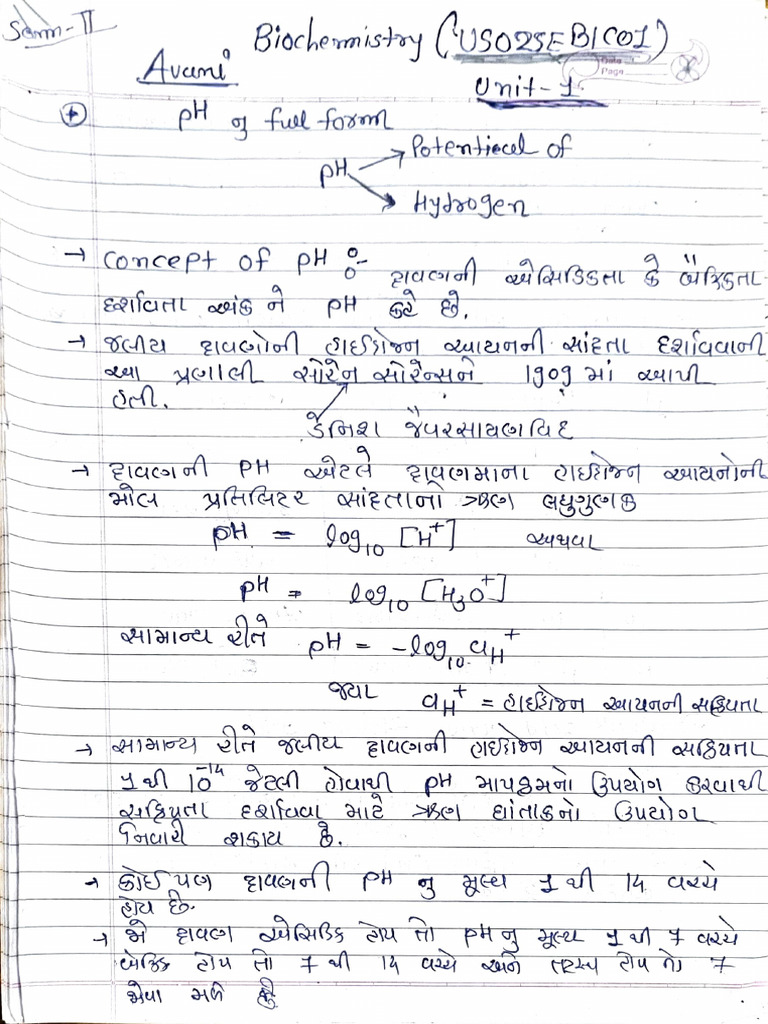 Sem-II
Biochemistry (US02SEBIC01)
Avani
Date
Page
Unit-1.
pH નુ full-form
pH Potentiecal of
Hydrogen
→ Concept of pH :- દ્રાવણની એસિડિકતા કે બૈઝિકતા
દર્શાવતા અંક ને pH કહે છે.
→ જલીય દ્રાવણોની હાઈડ્રોજન આયનની સાંદ્રતા દર્શાવવાની
આ પ્રણાલી સોરેન સોરેન્સને 1909 માં આપી
હતી.
ડેનિશ જૈવરસાયણવિદ
→ દ્રાવણની pH એટલે દ્રાવણમાના હાઈડ્રોજન આયનોની
મોલ પ્રતિલિટર સાંદ્રતાનો ઋણ લઘુગુણક
pH = log₁₀ [H⁺] અથવા
pH = log₁₀ [H₃O⁺]
સામાન્ય રીતે pH = -log₁₀ aH⁺
જ્યા aH⁺ = હાઇડ્રોજન આયનની સક્રિયતા
→ સામાન્ય રીતે જલીય દ્રાવણની હાઇડ્રોજન આયનની સક્રિયતા
1 થી 10⁻¹⁴ જેટલી હોવાથી pH માપક્રમનો ઉપયોગ કરવાથી
સક્રિયતા દર્શાવવા માટે ઋણ ઘાંતાકનો ઉપયોગ
નિવારી શકાય છે.
→ કોઈપણ દ્રાવણની pH નુ મૂલ્ય 1 થી 14 વચ્ચે
હોય છે.
→ જો દ્રાવણ એસિડિક હોય તો pH નુ મૂલ્ય 1 થી 7 વચ્ચે
બેઝિક હોય તો 7 થી 14 વચ્ચે અને તટસ્થ હોય તો 7
જોવા મળે છે